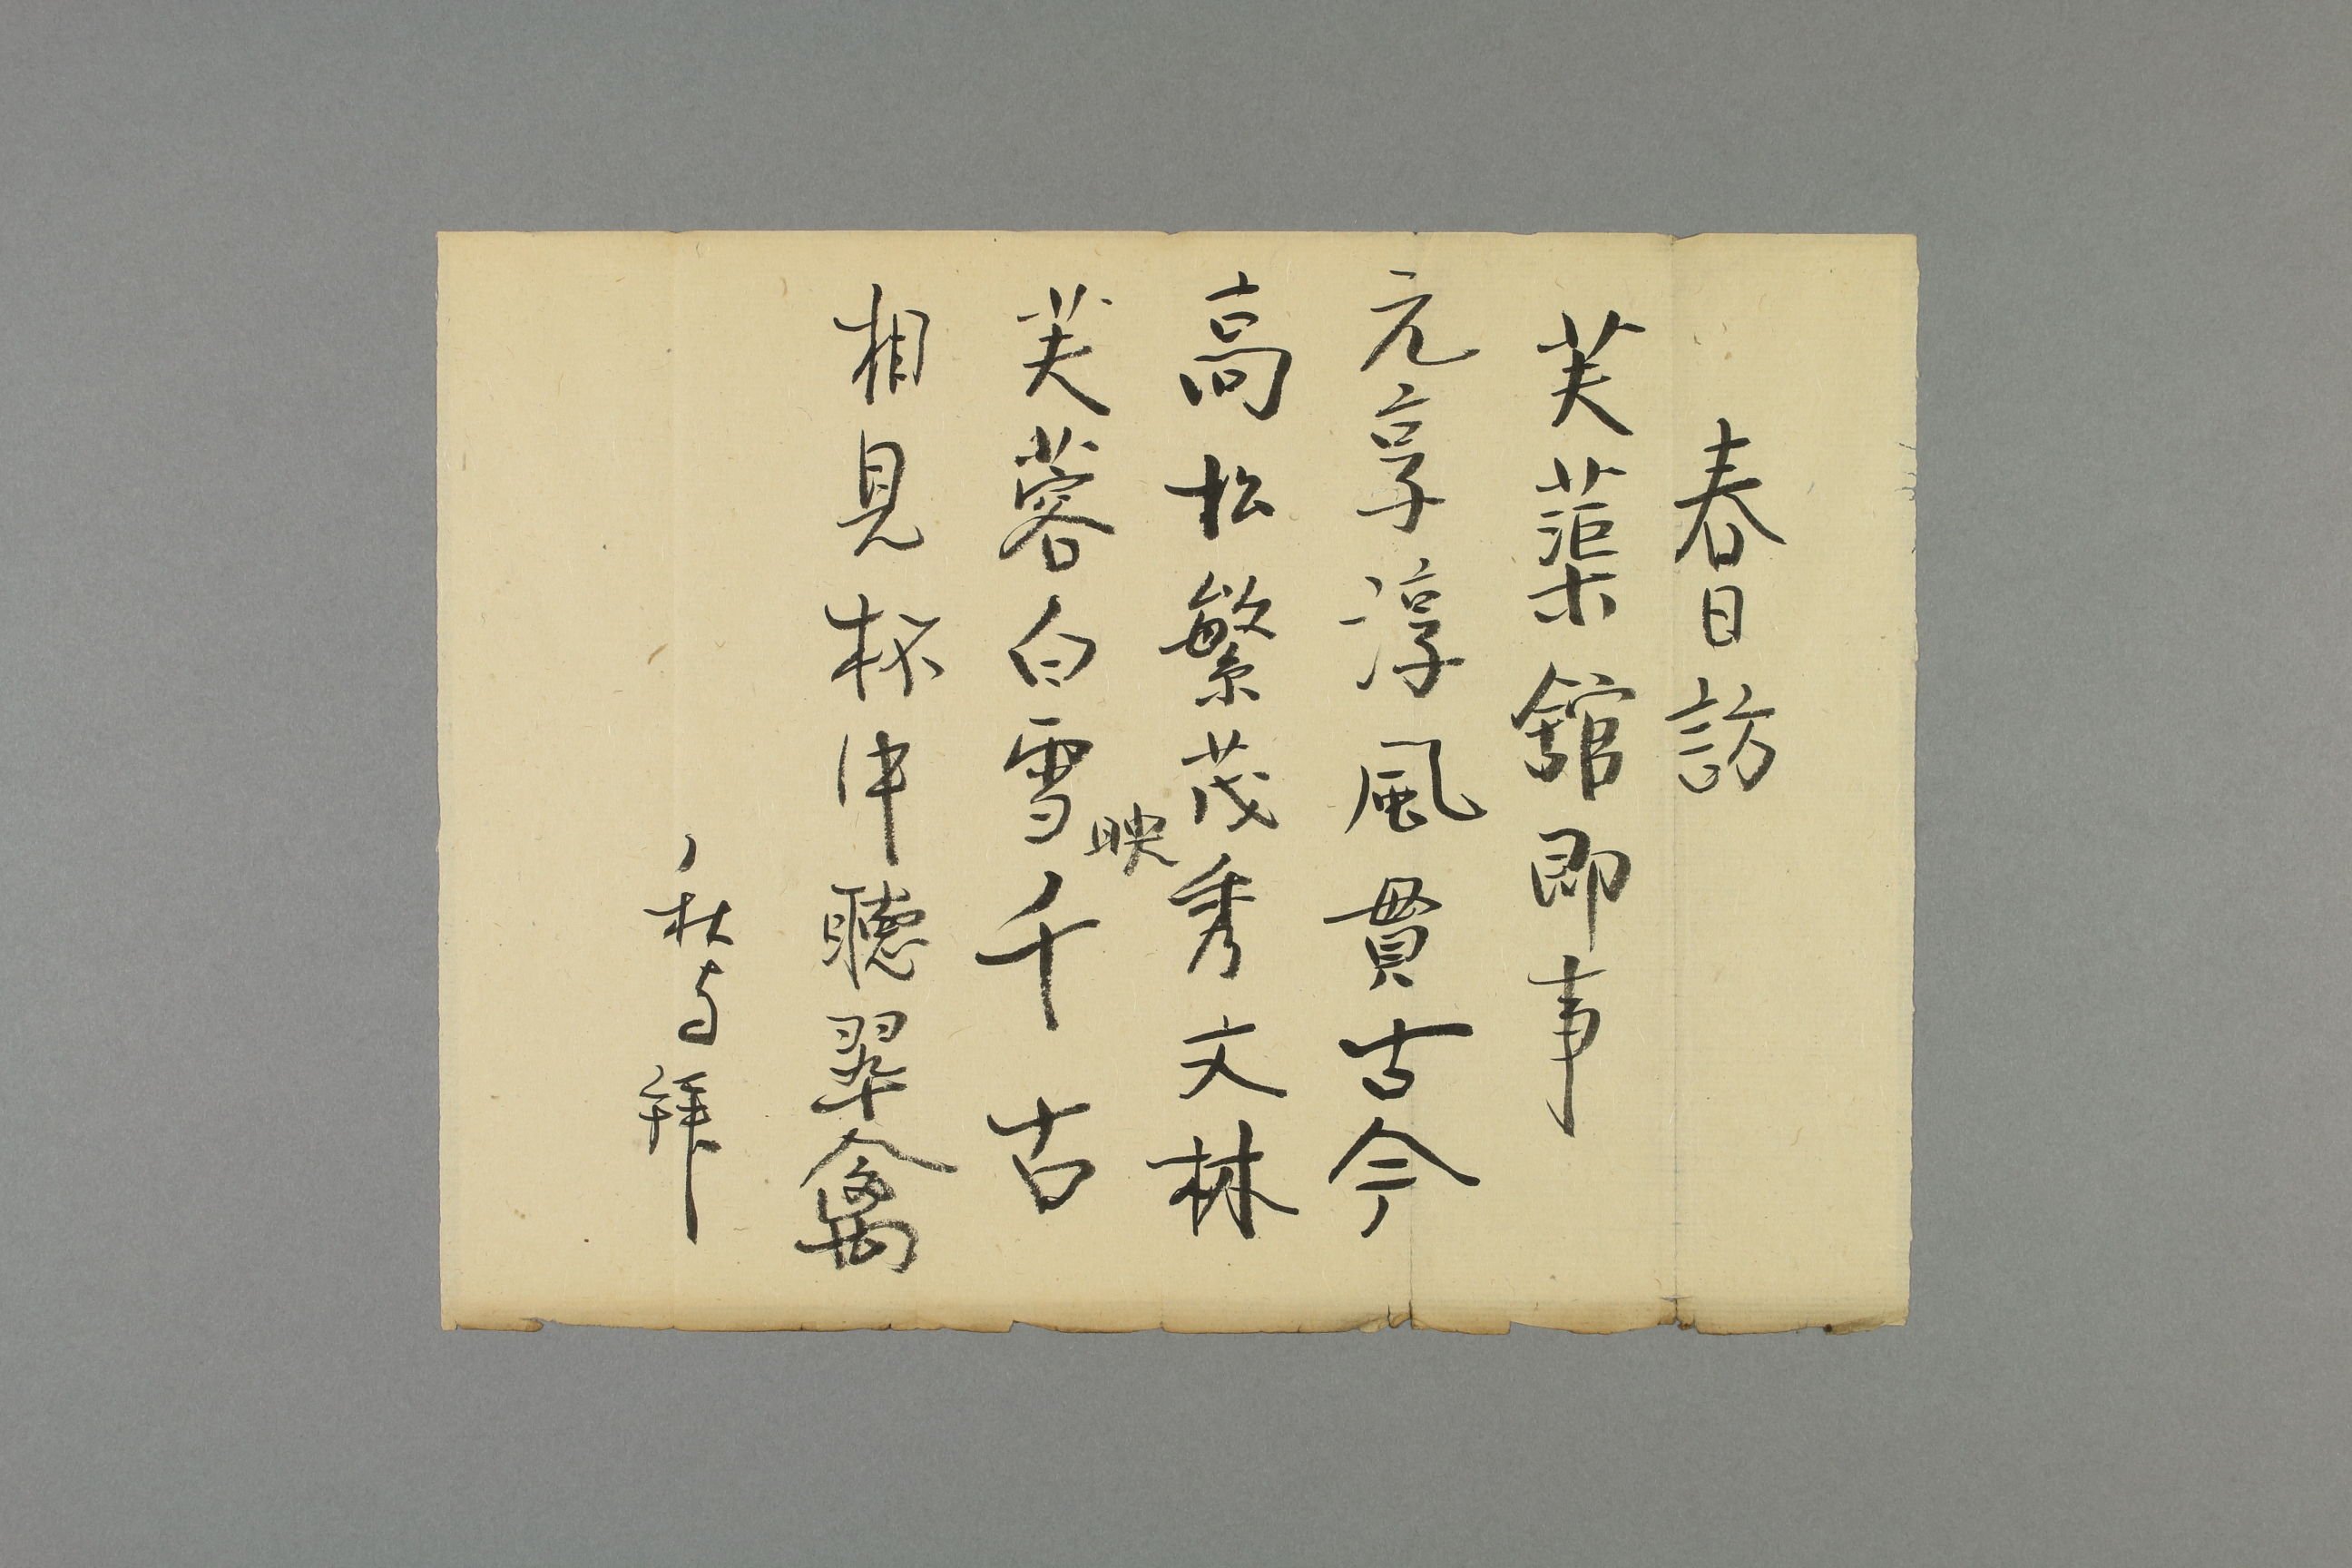 春日訪
芙蕖舘即事
元享淳風貫古今
高松繁茂秀文林
芙蓉白雪映千古
相見杯中聽翠禽
拜